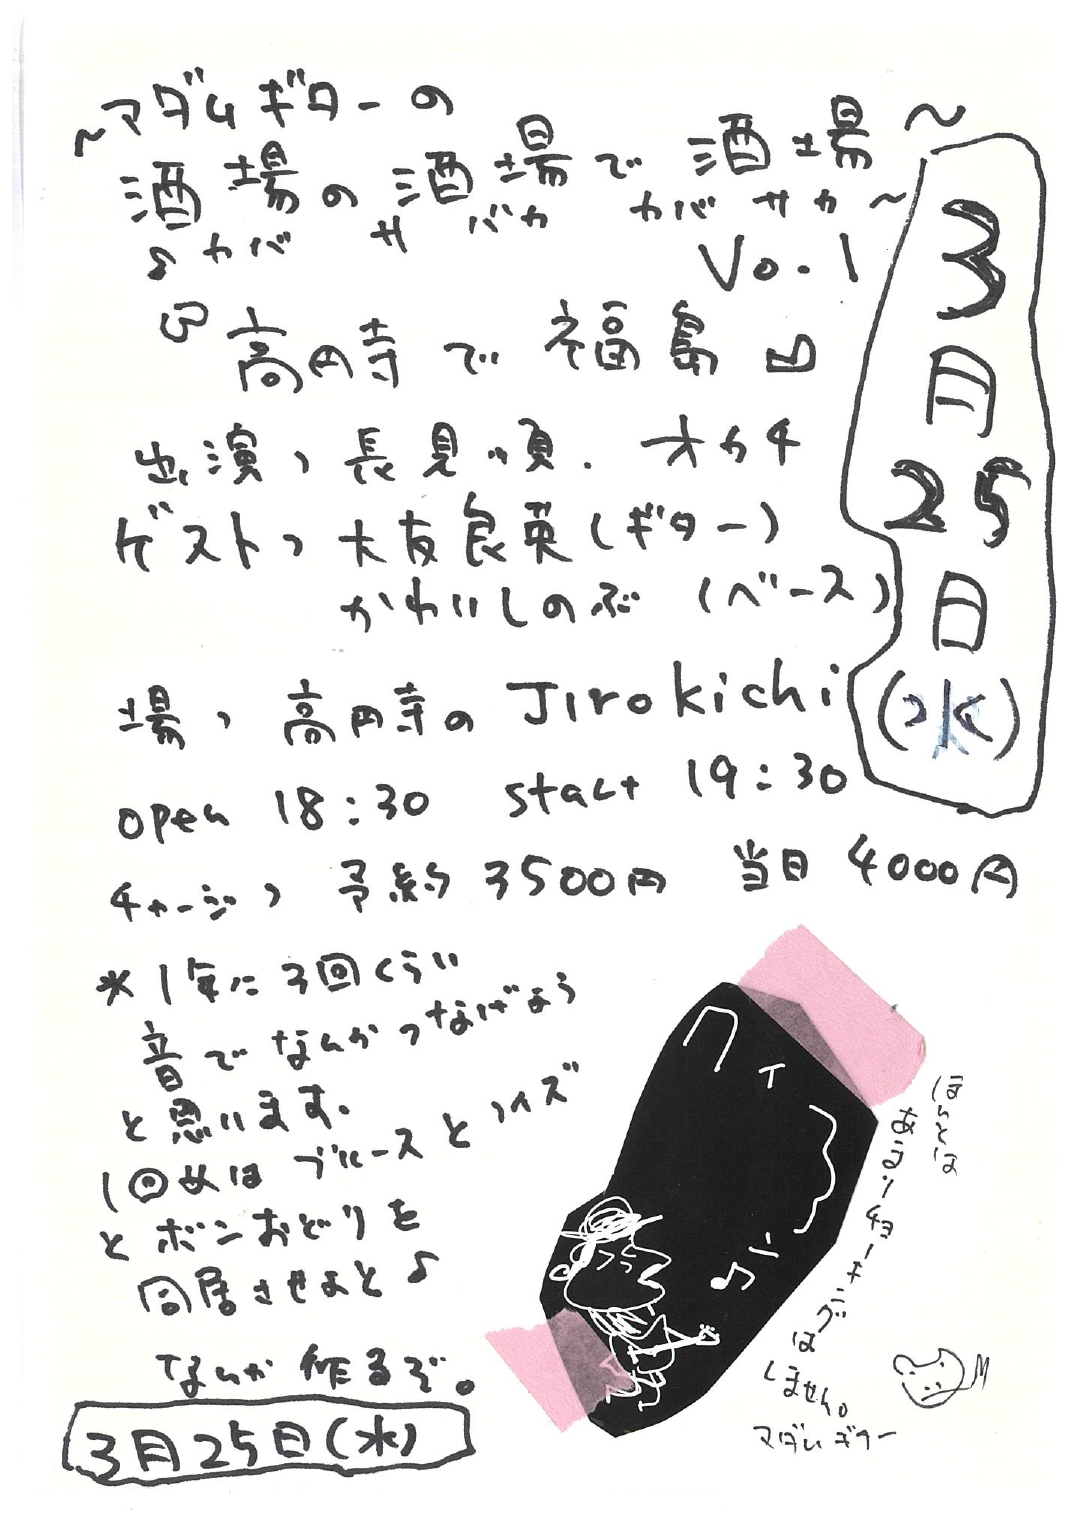 ～マダムギターの
酒場の酒場で酒場～
♪カバ サバカ カバサカ～
Vo.1
『高円寺で福島』
出演、長見順．オカチ
ゲスト、大友良英(ギター)
かわいしのぶ (ベース)
場、高円寺のJIrokichi
open 18:30 start 19:30
チャージ、予約3500円 当日4000円
3
月
25
日
(水)
*1年に3回くらい
音でなんかつなげよう
と思います。
1回めはブルースとノイズ
とボンおどりを
同居させよと♪
なんか作るぞ。
3月25日(水)
クイ
ーン♪
ほんとは
あまりチョーキングは
しません。
マダムギター